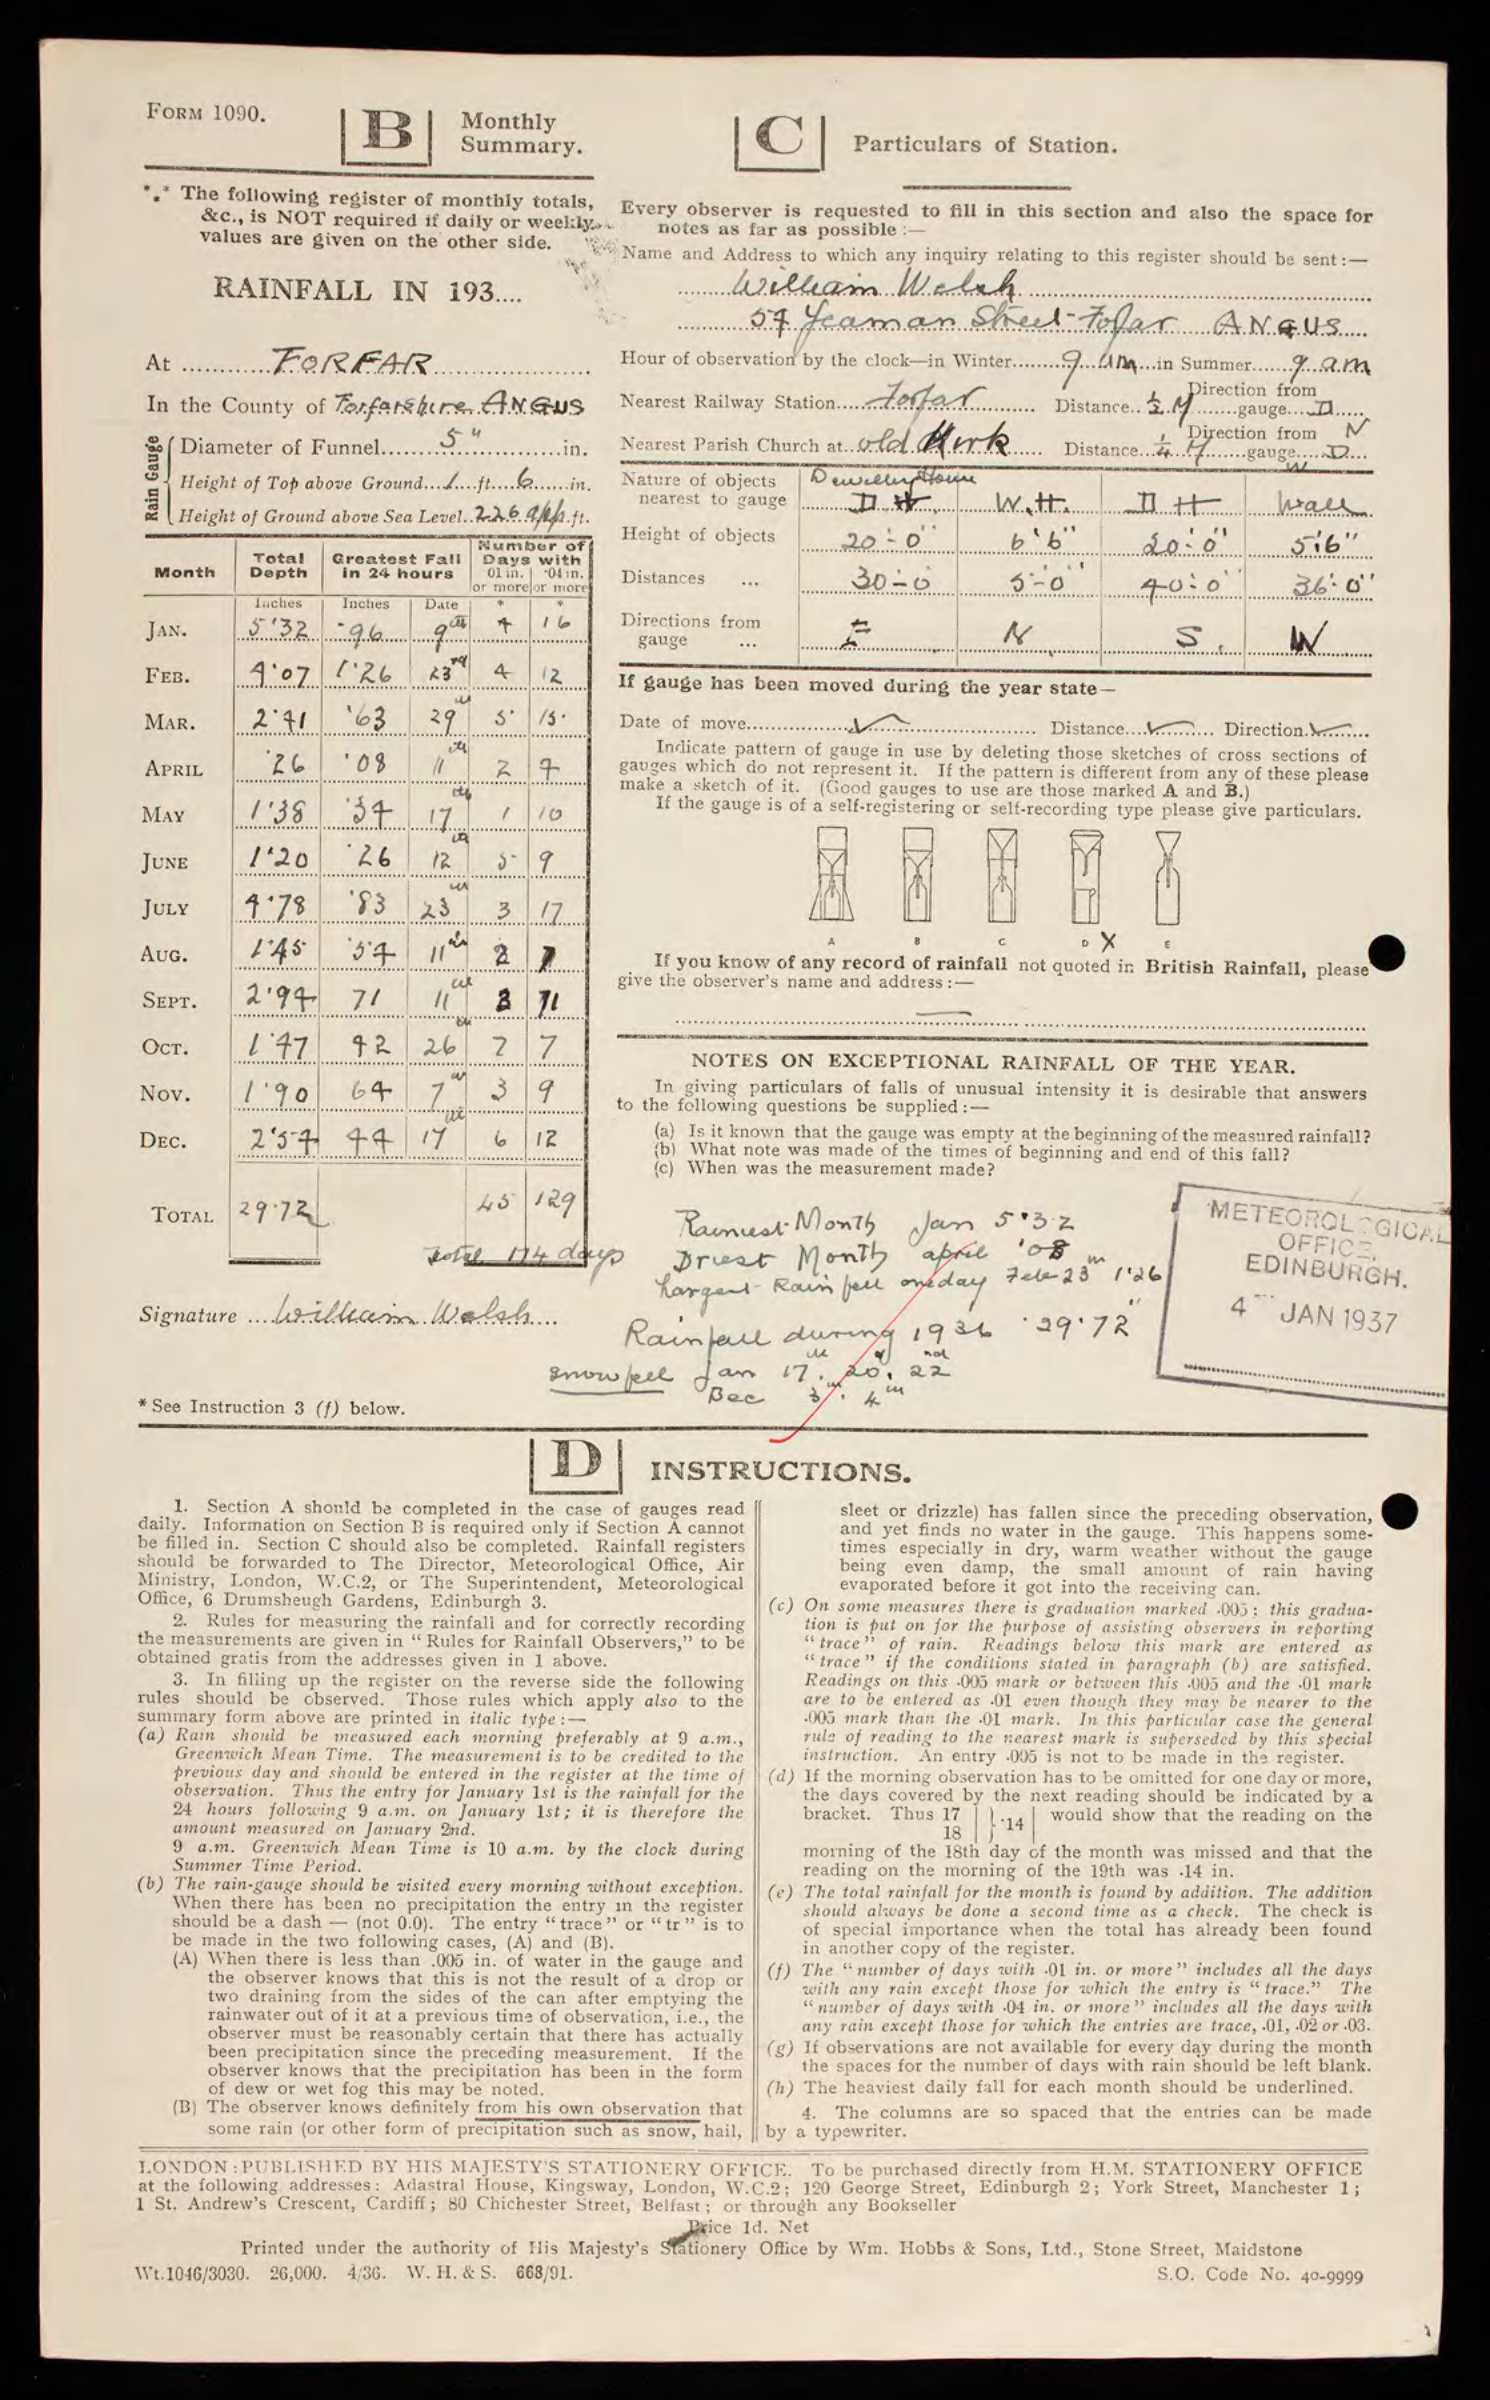 FORM 1090.
B
Monthly
Summary.
*.* The following register of monthly totals,
&c., is NOT required if daily or weekly
values are given on the other side.
RAINFALL IN 193....
At FORFAR
In the County of Forfarshire ANGUS
Rain Gauge
Diameter of Funnel 5" in.
Height of Top above Ground 1 ft. 6 in.
Height of Ground above Sea Level 226 app ft.
Month | Total Depth | Greatest Fall in 24 hours | Number of Days with
·01 in. or more | ·04 in. or more
Inches | Inches | Date | * | *
JAN. 5·32 ·96 9th 4 16
FEB. 4·07 1·26 23rd 4 12
MAR. 2·41 ·63 29th 5 15
APRIL ·26 ·08 11th 2 4
MAY 1·38 ·34 17th 1 10
JUNE 1·20 ·26 12th 5 9
JULY 4·78 ·83 23rd 3 17
AUG. 1·45 ·54 11th 2 7
SEPT. 2·94 71 11th 3 11
OCT. 1·47 42 26th 7 7
NOV. 1·90 64 7th 3 9
DEC. 2·54 44 17th 6 12
TOTAL 29·72 45 129
Total 174 days
Signature William Welsh
* See Instruction 3 (f) below.
C
Particulars of Station.
Every observer is requested to fill in this section and also the space for
notes as far as possible :—
Name and Address to which any inquiry relating to this register should be sent :—
William Welsh
54 Yeaman Street Fofar ANGUS
Hour of observation by the clock—in Winter 9 am in Summer 9 am
Nearest Railway Station Forfar Distance ½ M Direction from gauge
Nearest Parish Church at old Kirk Distance ¼ M Direction from gauge N W
Nature of objects nearest to gauge | Dwelling House D H | W.H. | D H | Wall
Height of objects 20'-0" 6'6" 20'-0" 5'6"
Distances ... 30'-0 5'-0" 40'-0" 36'-0"
Directions from gauge ... E N S. W
If gauge has been moved during the year state—
Date of move Distance Direction
Indicate pattern of gauge in use by deleting those sketches of cross sections of
gauges which do not represent it. If the pattern is different from any of these please
make a sketch of it. (Good gauges to use are those marked A and B.)
If the gauge is of a self-registering or self-recording type please give particulars.
A B C D X E
If you know of any record of rainfall not quoted in British Rainfall, please
give the observer's name and address :—
NOTES ON EXCEPTIONAL RAINFALL OF THE YEAR.
In giving particulars of falls of unusual intensity it is desirable that answers
to the following questions be supplied :—
(a) Is it known that the gauge was empty at the beginning of the measured rainfall?
(b) What note was made of the times of beginning and end of this fall?
(c) When was the measurement made?
Rainiest Month Jan 5·32
Driest Month april ·08
Largest Rain fell one day Feb 23rd 1·26
Rainfall during 1936 29·72"
snow fell Jan 17th. 20th. 22nd
Dec 3rd. 4th
METEOROLOGICAL
OFFICE,
EDINBURGH.
4 JAN 1937
D
INSTRUCTIONS.
1. Section A should be completed in the case of gauges read
daily. Information on Section B is required only if Section A cannot
be filled in. Section C should also be completed. Rainfall registers
should be forwarded to The Director, Meteorological Office, Air
Ministry, London, W.C.2, or The Superintendent, Meteorological
Office, 6 Drumsheugh Gardens, Edinburgh 3.
2. Rules for measuring the rainfall and for correctly recording
the measurements are given in “ Rules for Rainfall Observers,” to be
obtained gratis from the addresses given in 1 above.
3. In filling up the register on the reverse side the following
rules should be observed. Those rules which apply also to the
summary form above are printed in italic type :—
(a) Rain should be measured each morning preferably at 9 a.m.,
Greenwich Mean Time. The measurement is to be credited to the
previous day and should be entered in the register at the time of
observation. Thus the entry for January 1st is the rainfall for the
24 hours following 9 a.m. on January 1st; it is therefore the
amount measured on January 2nd.
9 a.m. Greenwich Mean Time is 10 a.m. by the clock during
Summer Time Period.
(b) The rain-gauge should be visited every morning without exception.
When there has been no precipitation the entry in the register
should be a dash — (not 0.0). The entry “ trace ” or “ tr ” is to
be made in the two following cases, (A) and (B).
(A) When there is less than .005 in. of water in the gauge and
the observer knows that this is not the result of a drop or
two draining from the sides of the can after emptying the
rainwater out of it at a previous time of observation, i.e., the
observer must be reasonably certain that there has actually
been precipitation since the preceding measurement. If the
observer knows that the precipitation has been in the form
of dew or wet fog this may be noted.
(B) The observer knows definitely from his own observation that
some rain (or other form of precipitation such as snow, hail,
sleet or drizzle) has fallen since the preceding observation,
and yet finds no water in the gauge. This happens some-
times especially in dry, warm weather without the gauge
being even damp, the small amount of rain having
evaporated before it got into the receiving can.
(c) On some measures there is graduation marked .005 ; this gradua-
tion is put on for the purpose of assisting observers in reporting
“ trace ” of rain. Readings below this mark are entered as
“ trace ” if the conditions stated in paragraph (b) are satisfied.
Readings on this .005 mark or between this .005 and the .01 mark
are to be entered as .01 even though they may be nearer to the
.005 mark than the .01 mark. In this particular case the general
rule of reading to the nearest mark is superseded by this special
instruction. An entry .005 is not to be made in the register.
(d) If the morning observation has to be omitted for one day or more,
the days covered by the next reading should be indicated by a
bracket. Thus 17 18 } ·14 would show that the reading on the
morning of the 18th day of the month was missed and that the
reading on the morning of the 19th was .14 in.
(e) The total rainfall for the month is found by addition. The addition
should always be done a second time as a check. The check is
of special importance when the total has already been found
in another copy of the register.
(f) The “ number of days with .01 in. or more ” includes all the days
with any rain except those for which the entry is “ trace.” The
“ number of days with .04 in. or more ” includes all the days with
any rain except those for which the entries are trace, .01, .02 or .03.
(g) If observations are not available for every day during the month
the spaces for the number of days with rain should be left blank.
(h) The heaviest daily fall for each month should be underlined.
4. The columns are so spaced that the entries can be made
by a typewriter.
LONDON : PUBLISHED BY HIS MAJESTY'S STATIONERY OFFICE. To be purchased directly from H.M. STATIONERY OFFICE
at the following addresses : Adastral House, Kingsway, London, W.C.2 ; 120 George Street, Edinburgh 2 ; York Street, Manchester 1 ;
1 St. Andrew's Crescent, Cardiff ; 80 Chichester Street, Belfast ; or through any Bookseller
Price 1d. Net
Printed under the authority of His Majesty's Stationery Office by Wm. Hobbs & Sons, Ltd., Stone Street, Maidstone
Wt.1046/3030. 26,000. 4/36. W. H. & S. 668/91.
S.O. Code No. 40-9999